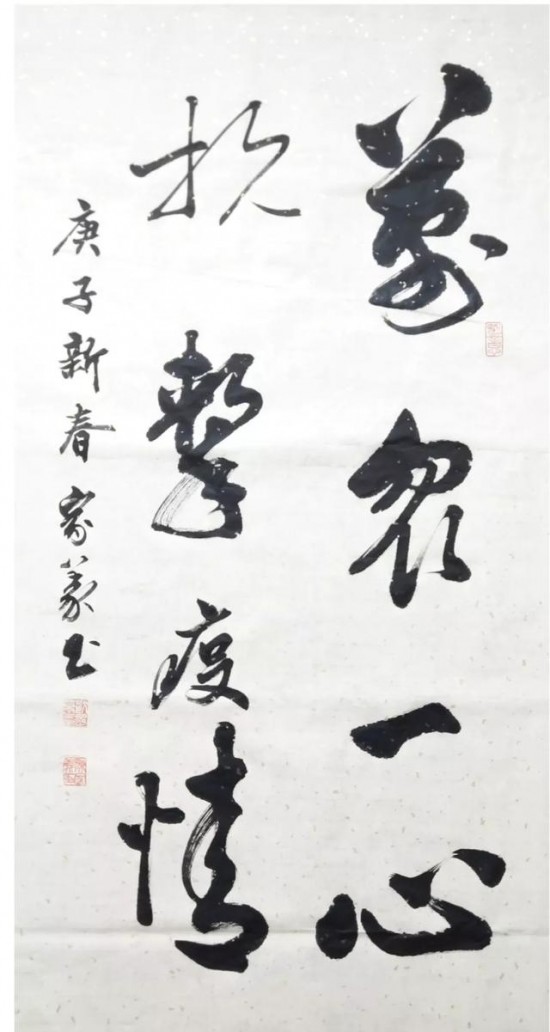 萬眾一心
抗擊疫情
庚子新春 家義书